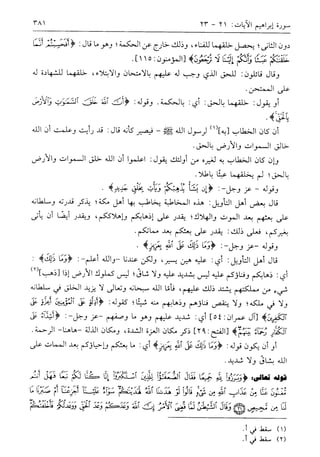 سورة إبراهيم الآيات: ٢١ - ٢٣ ٣٨١
دون الثاني؛ يحصل خلقهما للفناء، وذلك خارج عن الحكمة؛ وهو ما قال: ﴿أَفَحَسِبْتُمْ أَنَّمَا
خَلَقْنَاكُمْ عَبَثًا وَأَنَّكُمْ إِلَيْنَا لَا تُرْجَعُونَ﴾ [المؤمنون: ١١٥].
وقال قائلون: للحق الذي وجب له عليهم بالامتحان والابتلاء، خلقهما للشهادة له
على الممتحن.
أو يقول: خلقهما بالحق؛ أي: بالحكمة. وقوله: ﴿أَلَمْ تَرَ أَنَّ اللَّهَ خَلَقَ السَّمَوَاتِ وَالْأَرْضَ
بِالْحَقِّ﴾.
أن كان الخطاب [به](١) لرسول الله ﷺ - فيصير كأنه قال: قد رأيت وعلمت أن الله
خالق السموات والأرض بالحق.
وإن كان الخطاب به لغيره من أولئك يقول: اعلموا أن الله خلق السموات والأرض
بالحق؛ لم يخلقهما عبثًا باطلا.
وقوله - عز وجل-: ﴿إِن يَشَأْ يُذْهِبْكُمْ وَيَأْتِ بِخَلْقٍ جَدِيدٍ﴾.
قال بعض أهل التأويل: هذه المخاطبة يخاطب بها أهل مكة؛ يذكر قدرته وسلطانه
على بعثهم بعد الموت والهلاك؛ يقدر على إذهابكم وإهلاككم، ويقدر أيضًا أن يأتى
بغيركم، فعلى ذلك: يقدر على بعثكم بعد مماتكم.
وقوله -عز وجل-: ﴿وَمَا ذَلِكَ عَلَى اللَّهِ بِعَزِيزٍ﴾.
قال أهل التأويل: أي: عليه هين يسير، ولكن عندنا -والله أعلم-: ﴿وَمَا ذَلِكَ﴾:
أي: ذهابكم وفناؤكم عليه ليس بشديد عليه ولا شاق؛ ليس كملوك الأرض إذا [ذهب](٢)
شيء من مملكتهم يشتد ذلك عليهم، فأما الله سبحانه وتعالى لا يزيد الخلق في سلطانه
ولا في ملكه؛ ولا ينقص فناؤهم وذهابهم منه شيئًا؛ كقوله: ﴿أَذِلَّةٍ عَلَى الْمُؤْمِنِينَ أَعِزَّةٍ عَلَى
الْكَافِرِينَ﴾ [آل عمران: ٥٤] أي: شديد عليهم وهو ما وصفهم -عز وجل-: ﴿أَشِدَّاءُ عَلَى
الْكُفَّارِ رُحَمَاءُ بَيْنَهُمْ﴾ [الفتح: ٢٩] ذكر مكان العزة الشدة، ومكان الذلة -هاهنا- الرحمة.
أو أن يكون قوله: ﴿وَمَا ذَلِكَ عَلَى اللَّهِ بِعَزِيزٍ﴾ أي: ما بعثكم وإحياؤكم بعد الممات على
الله بشاق ولا شديد.
قوله تعالى: ﴿وَبَرَزُوا لِلَّهِ جَمِيعًا فَقَالَ الضُّعَفَاءُ لِلَّذِينَ اسْتَكْبَرُوا إِنَّا كُنَّا لَكُمْ تَبَعًا فَهَلْ أَنتُم
مُّغْنُونَ عَنَّا مِنْ عَذَابِ اللَّهِ مِن شَيْءٍ قَالُوا لَوْ هَدَانَا اللَّهُ لَهَدَيْنَاكُمْ سَوَاءٌ عَلَيْنَا أَجَزِعْنَا أَمْ صَبَرْنَا مَا
لَنَا مِن مَّحِيصٍ ﴿٢١﴾ وَقَالَ الشَّيْطَانُ لَمَّا قُضِيَ الْأَمْرُ إِنَّ اللَّهَ وَعَدَكُمْ وَعْدَ الْحَقِّ وَوَعَدتُّكُمْ فَأَخْلَفْتُكُمْ
(١) سقط في أ.
(٢) سقط في أ.